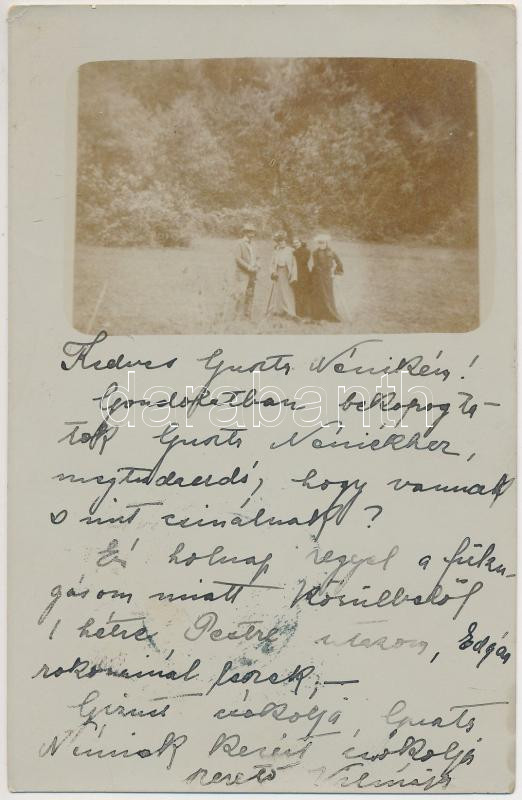 Kedves Guszta Nénikém!
Gondolatban bekopogta-
tok Guszta Néniékhez,
megtudandó, hogy vannak
s mit csinálnak?
Én holnap reggel a fülzu-
gásom miatt körülbelől
1 hétre Pestre utazom, Edgár
rokonainál leszek, —
Gizust csókolja Guszta
Néninek kezeit csókolja
szerető Vilmája
darabanth